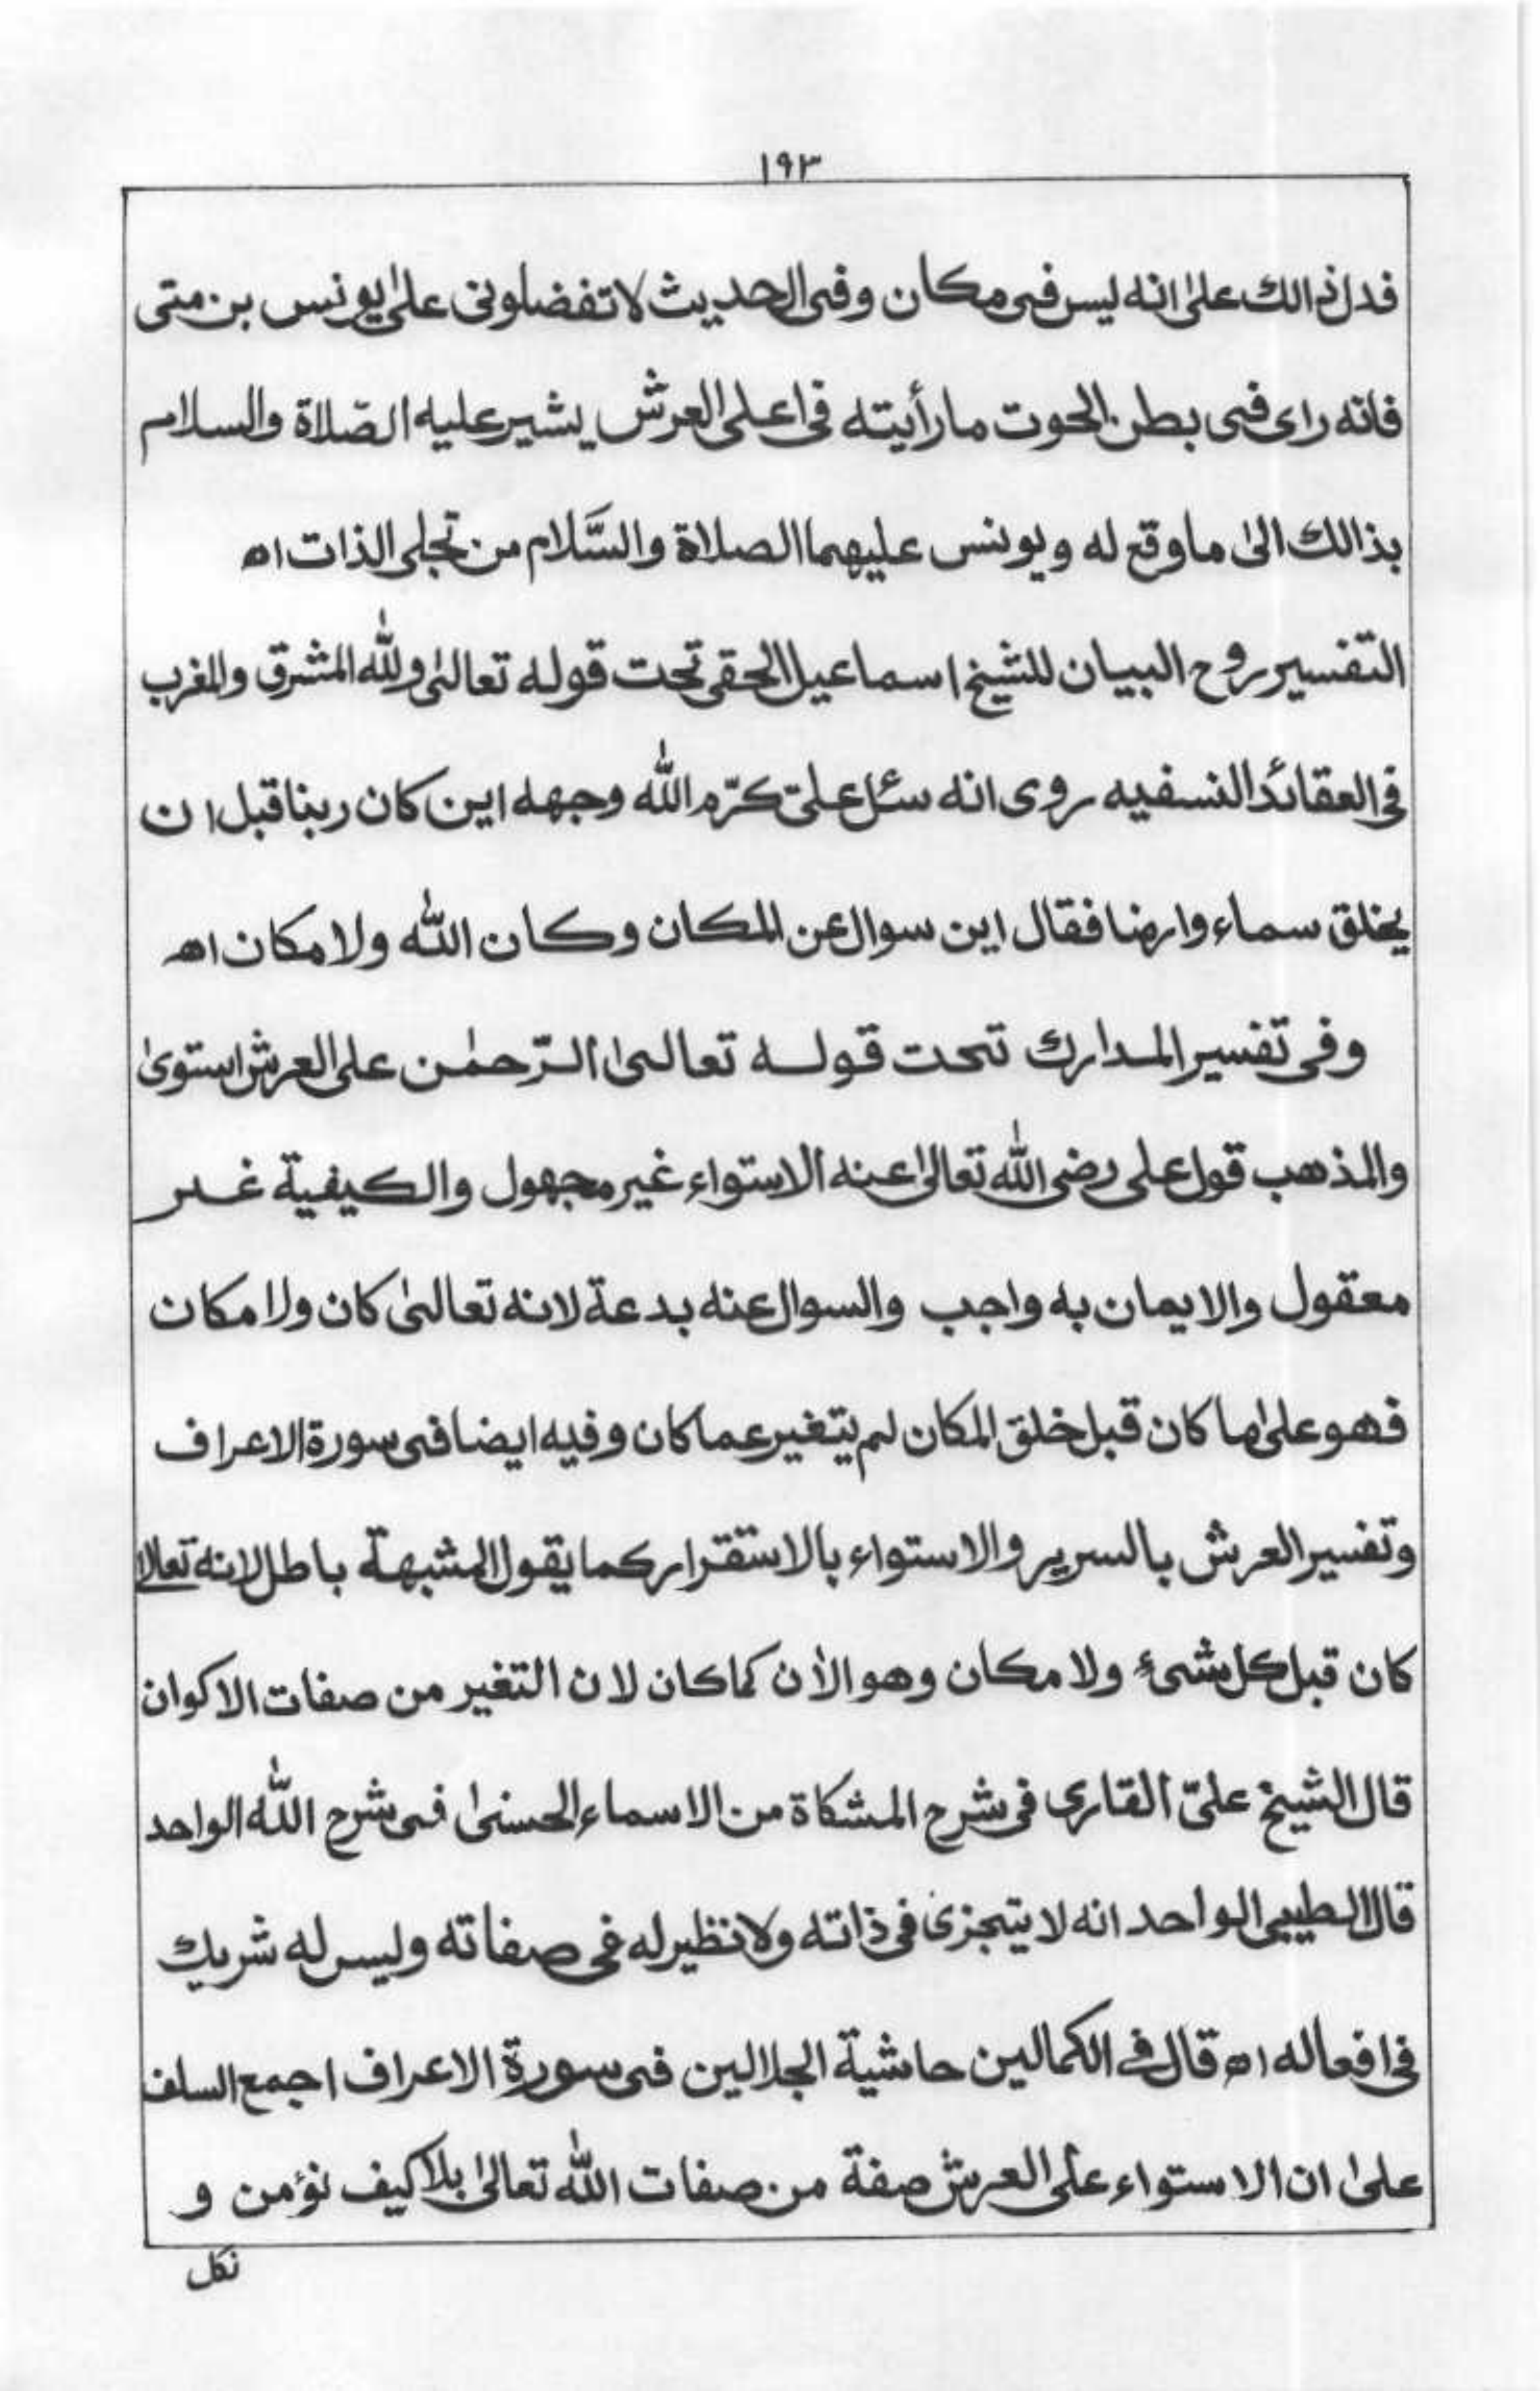 ١٩٣
فدل ذالك على انه ليس فى مكان وفى الحديث لا تفضلونى على يونس بن متى
فانه راى فى بطن الحوت ما رأيته فى اعلى العرش يشير عليه الصّلاة والسلام
بذالك الى ما وقع له ويونس عليهما الصلاة والسَّلام من تجلى الذات اه
التفسير روح البيان للشيخ اسماعيل الحقى تحت قوله تعالىٰ ولله المشرق والمغرب
فى العقائد النسفيه روى انه سئل علىّ كرّم الله وجهه اين كان ربنا قبل ان
يخلق سماء وارضا فقال اين سوال عن المكان وكان الله ولا مكان اه
وفى تفسير المدارك تحت قوله تعالىٰ الرّحمٰن على العرش استوىٰ
والمذهب قول على رضى الله تعالىٰ عنه الاستواء غير مجهول والكيفية غير
معقول والايمان به واجب والسوال عنه بدعة لانه تعالىٰ كان ولا مكان
فهو علىٰ ما كان قبل خلق المكان لم يتغير عما كان وفيه ايضا فى سورة الاعراف
وتفسير العرش بالسرير والاستواء بالاستقرار كما يقول المشبهة باطل لانه تعالىٰ
كان قبل كل شىءٍ ولا مكان وهو الأن كما كان لان التغير من صفات الاكوان
قال الشيخ علىّ القارى فى شرح المشكاة من الاسماء الحسنىٰ فى شرح الله الواحد
قال الطيبى الواحد انه لا يتجزى فى ذاته ولا نظير له فى صفاته وليس له شريك
فى افعاله اه قال فى الكمالين حاشية الجلالين فى سورة الاعراف اجمع السلف
علىٰ ان الاستواء على العرش صفة من صفات الله تعالىٰ بلا كيف نؤمن و
نكل